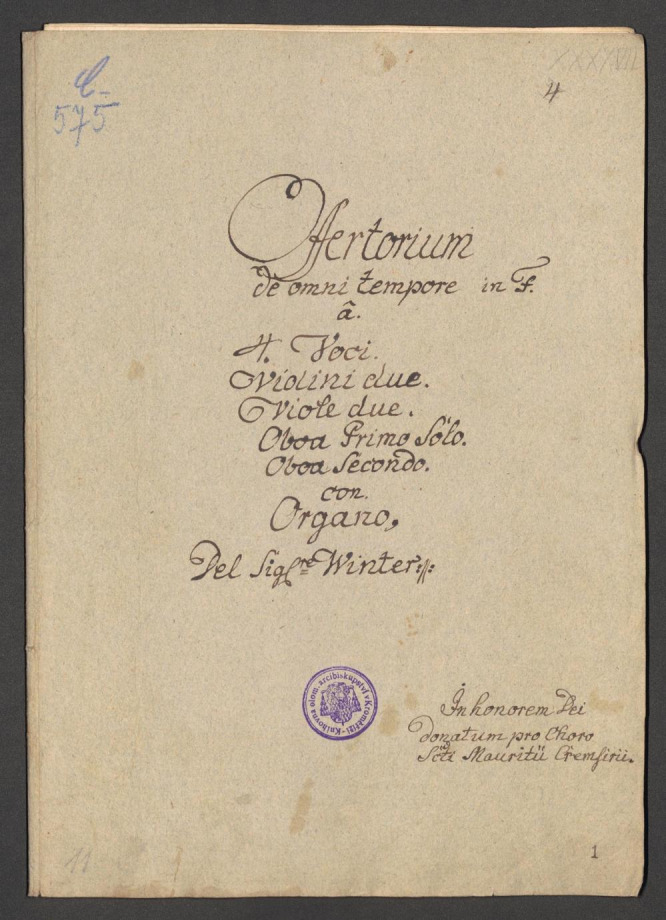 C-
575
XXXXVII
4
Offertorium
de omni tempore in F.
â.
4. Voci.
Violini due.
Viole due.
Oboa Primo Sólo.
Oboa Secondo.
con.
Organo,
Del Sigl:re Winter://:
Knihovna olom. arcibiskupství v Kroměříži
In honorem Dei
donatum pro Choro
Scti Mauritii Cremsirii.
11
1